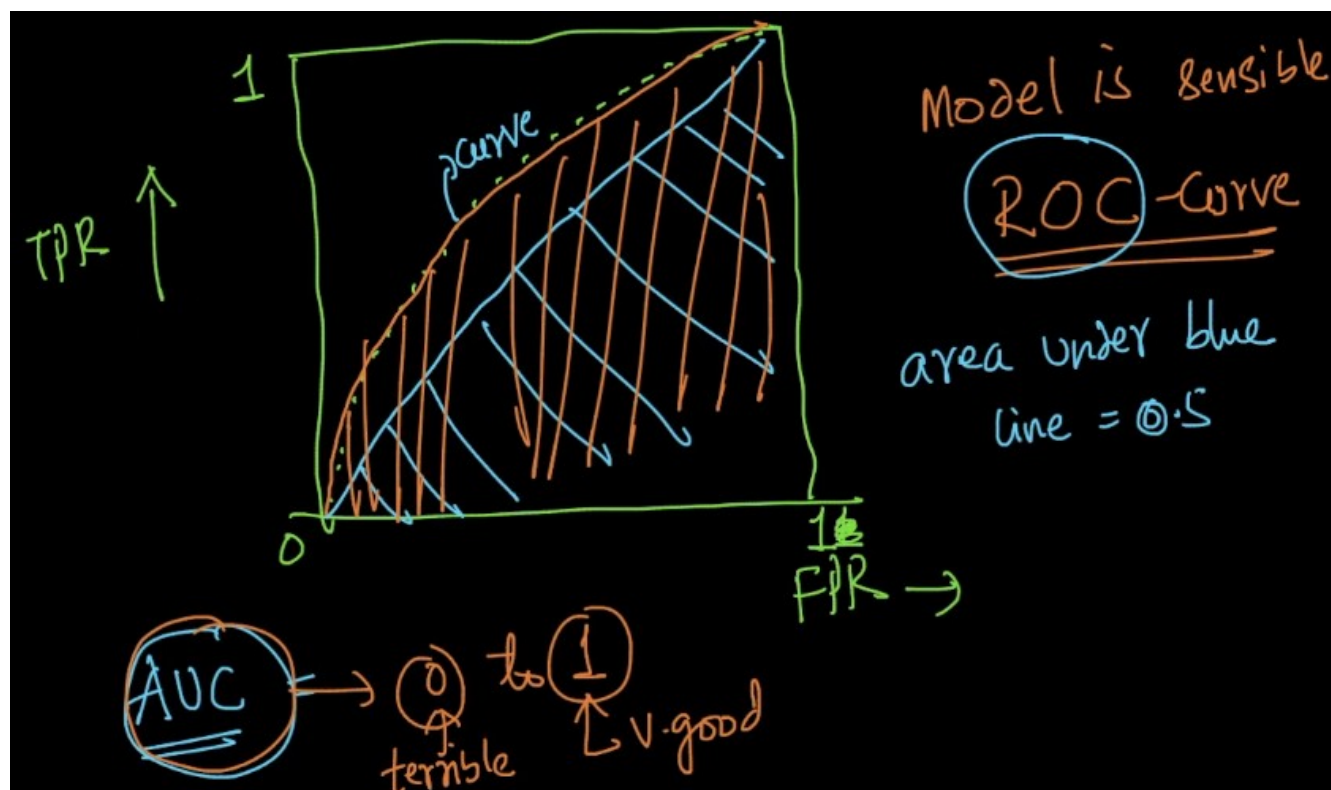 1
curve
TPR
0
1
FPR
Model is sensible
ROC-Curve
area under blue
line = 0.5
AUC
0 to 1
terrible
v.good